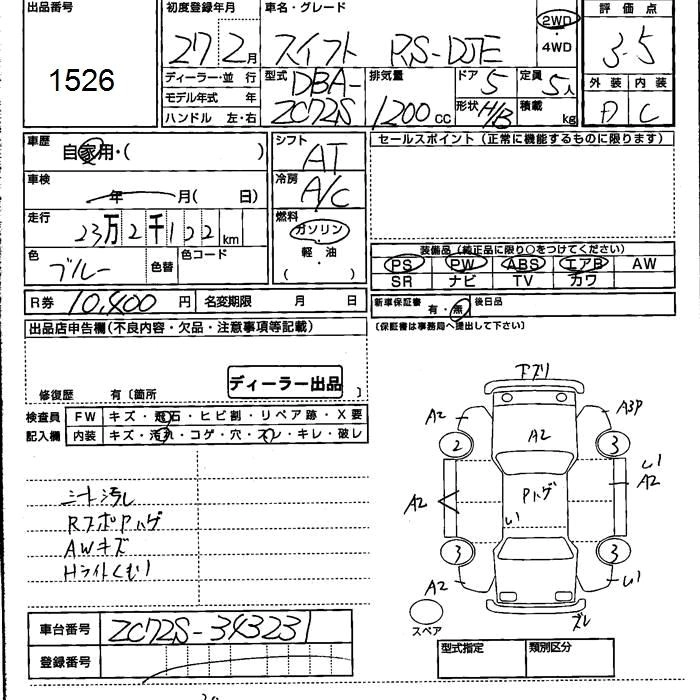 出品番号
1526
初度登録年月
27 2月
車名・グレード
スイフト RS-DJE
2WD
・
4WD
評価点
3.5
外装 内装
A C
ディーラー・並行
モデル年式 年
ハンドル 左・右
型式
DBA-
ZC72S
排気量
1200 cc
ドア 5
形状 H/B
定員 5人
積載 kg
車歴
自家用・( )
車検
年 月( 日)
走行
23万2千122km
色
ブルー
色替
色コード
シフト
AT
冷房
A/C
燃料
ガソリン
・
軽・油
( )
セールスポイント(正常に機能するものに限ります)
装備品(純正品に限り○をつけてください)
PS PW ABS エアB AW
SR ナビ TV カワ
R券 10,400円 名変期限 月 日
新車保証書 有・無 後日品
(保証書は事務局へ提出して下さい)
出品店申告欄(不良内容・欠品・注意事項等記載)
修復歴 有〔箇所 〕
ディーラー出品
検査員
記入欄
FW キズ・飛石・ヒビ割・リペア跡・X要
内装 キズ・汚れ・コゲ・穴・スレ・キレ・破レ
シート汚し
RスポPハゲ
AWキズ
Hライトくもり
下ズリ
A2
A3P
2
A2
3
Pハゲ
A2
3
3
A2
ズレ
スペア
車台番号 ZC72S-343231
登録番号
型式指定 類別区分